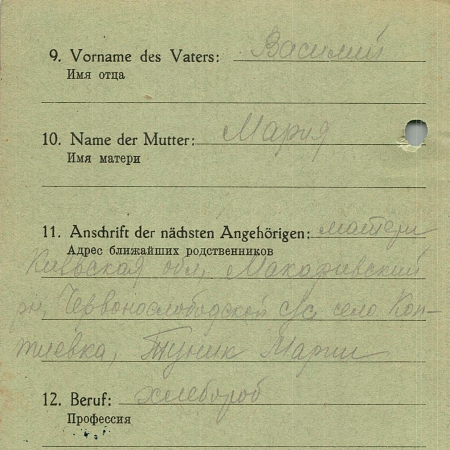 9. Vorname des Vaters: Василий
Имя отца
10. Name der Mutter: Мария
Имя матери
11. Anschrift der nächsten Angehörigen: матери
Адрес ближайших родственников
Киевская обл, Макаривский
рн, Червонослободской с/с, село Коп-
тиевка, Туник Марии
12. Beruf: хлебороб
Профессия